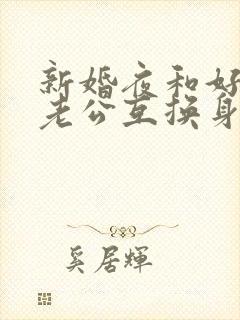 新婚夜和好
老公互换身
奚居輝